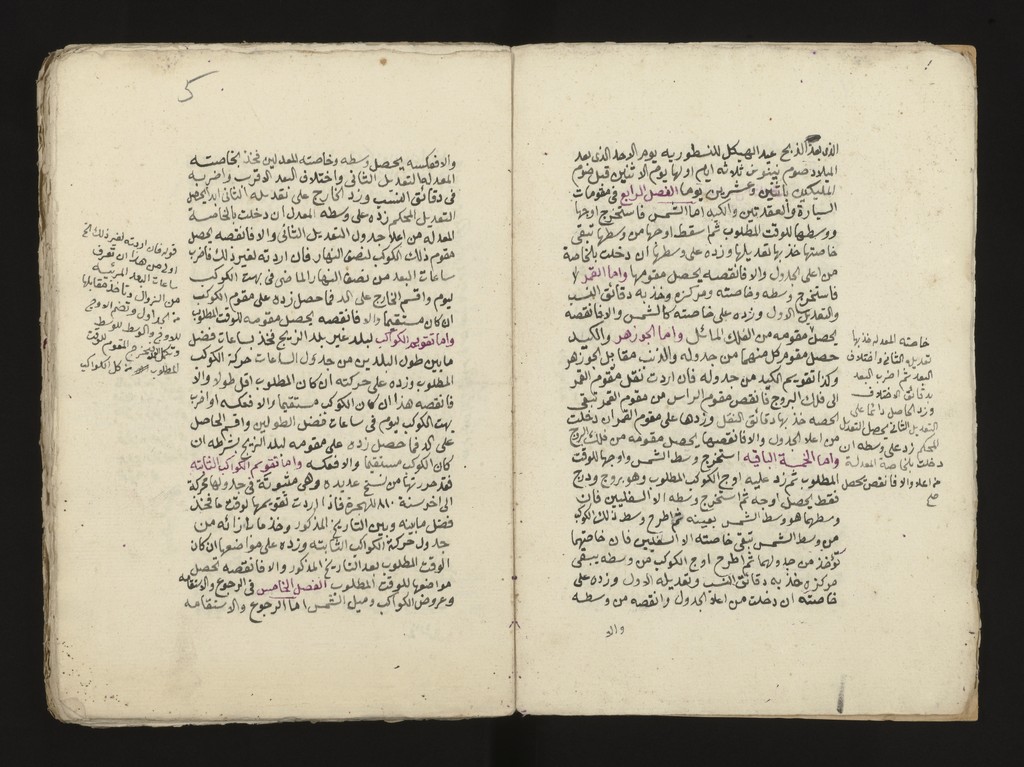 الذى بعد الذبح عيد الهيكل للنسطوريه يوم الاحد الذى بعد
الميلاد صوم نينوى ثلاثة ايام اولها يوم الاثنين قبل صوم
المليكيين باثنين وعشرين يوما الفصل الرابع فى مقومات
السيارة والعقدتين والكيد اما الشمس فاستخرج اوجها
ووسطها للوقت المطلوب ثم سقط اوجها من وسطها تبقى
خاصتها خذ بها تعديلها وزده على وسطها ان دخلت بالخاصة
من اعلى الجدول والا فانقصه يحصل مقومها واما القمر
فاستخرج وسطه وخاصته ومركزه وخذ به دقائق النسب
والتعديل الاول وزده على خاصته كالشمس والا فانقصه
يحصل مقومه من الفلك المائل واما الجوزهر والكيد
حصل مقوم كل منهما من جدوله والذنب مقابل الجوزهر
وكذا تقويم الكيد من جدوله فان اردت نقل مقوم القمر
الى فلك البروج فانقص مقوم الراس من مقوم القمر تبقى
الحصه خذ بها دقائق النقل وزدها على مقوم القمر ان دخلت
من اعلا الجدول والا فانقصها يحصل مقومه من فلك البروج
واما الخمسة الباقيه استخرج وسط الشمس واوجها للوقت
المطلوب ثم زد عليه اوج الكوكب المطلوب وهو بروج ودرج
فقط يحصل اوجه ثم استخرج وسطه الا السفليين فان
وسطهما هو وسط الشمس بعينه ثم اطرح وسط ذلك الكوكب
من وسط الشمس تبقى خاصته الا السفليين فان خاصتهما
تؤخذ من جدولهما ثم اطرح اوج الكوكب من وسطه يبقى
مركزه خذ به دقائق النسب وتعديله الاول وزده على
خاصته ان دخلت من اعلا الجدول وانقصه من وسطه
والا
خاصته المعدله فخذ بها
تعديله الثانى واختلاف
البعد ثم اضرب البعد
بدقائق الاختلاف
وزد الحاصل دائما على
التعديل الثانى يحصل التعديل
المحكم زد على وسطه ان
دخلت بالخاصة المعدلة
من اعلا والا فانقص يحصل
صح
5
والا فعكسه يحصل وسطه وخاصته المعدلين فخذ بخاصته
المعدله التعديل الثانى واختلاف البعد الاقرب واضربه
فى دقائق النسب وزد الخارج على تعديله الثانى ابدا يحصل
التعديل المحكم زده على وسطه المعدل ان دخلت بالخاصة
المعدله من اعلا جدول التعديل الثانى والا فانقصه يحصل
مقوم ذلك الكوكب لنصف النهار فان اردته لغير ذلك فاضرب
ساعات البعد من نصف النهار الماضى فى بهت الكوكب
ليوم واقسم الخارج على كد فما حصل زده على مقوم الكوكب
ان كان مستقيما والا فانقصه يحصل مقومه للوقت المطلوب
واما تقويم الكواكب لبلد غير بلد الزيج فخذ بساعات فضل
ما بين طول البلدين من جدول الساعات حركة الكوكب
المطلوب وزده على حركته ان كان المطلوب اقل طولا والا
فانقصه هذا ان كان الكوكب مستقيما والا فعكسه او اضرب
بهت الكوكب ليوم فى ساعات فضل الطولين واقسم الحاصل
على كد فما حصل زده على مقومه لبلد الزيج بشرطه ان
كان الكوكب مستقيما والا فعكه واما تقويم الكواكب الثابته
فقد حررتها من نسخ عديده وهى مثبوتة فى جدولها محركة
الى اخر سنة ٨٠ للهجرة فاذا اردت تقويمها لوقت ما فخذ
فضل ما بينه وبين التاريخ المذكور وخذ ما بازائه من
جدول حركة الكواكب الثابته وزده على مواضعها ان كان
الوقت المطلوب بعد التاريخ المذكور والا فانقصه تحصل
مواضعها للوقت المطلوب الفصل الخامس فى الرجوع والاستقامه
وعروض الكواكب وميل الشمس اما الرجوع والاستقامه
قوله فان اردته لغير ذلك الخ
اولى من هذا ان تعرف
ساعات البعد المرتبه
من الزوال وتاخذ مقابلها
من الجداول وتضم الاوج
للاوج والوسط للوسط
وتكمل يخرج المقوم للوقت
المطلوب من كل الكواكب